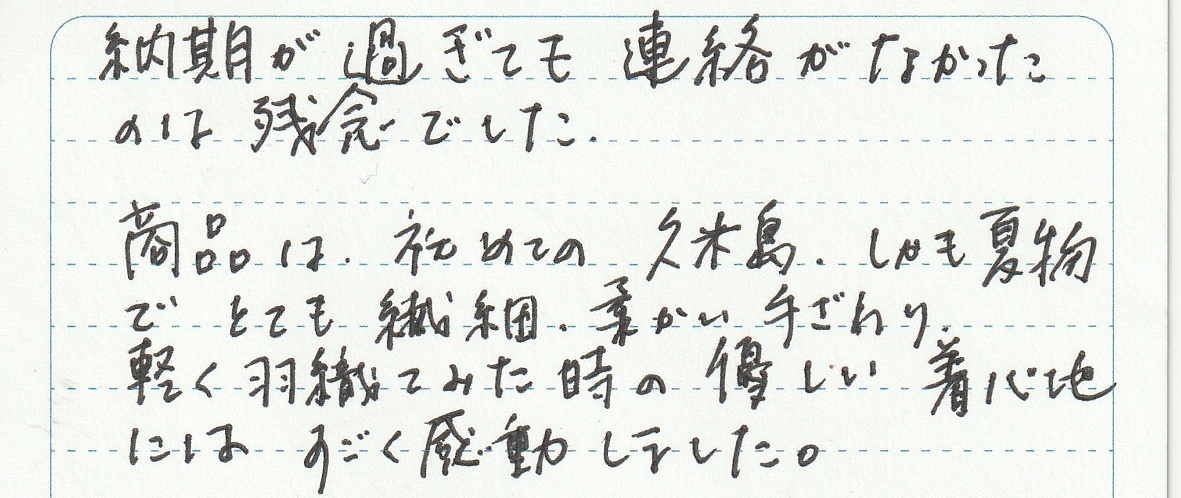 納期が過ぎても連絡がなかった
のは残念でした.
商品は、初めての久米島、しかも夏物
でとても繊細、柔かい手ざわり、
軽く羽織てみた時の優しい着心地
にはすごく感動しました。